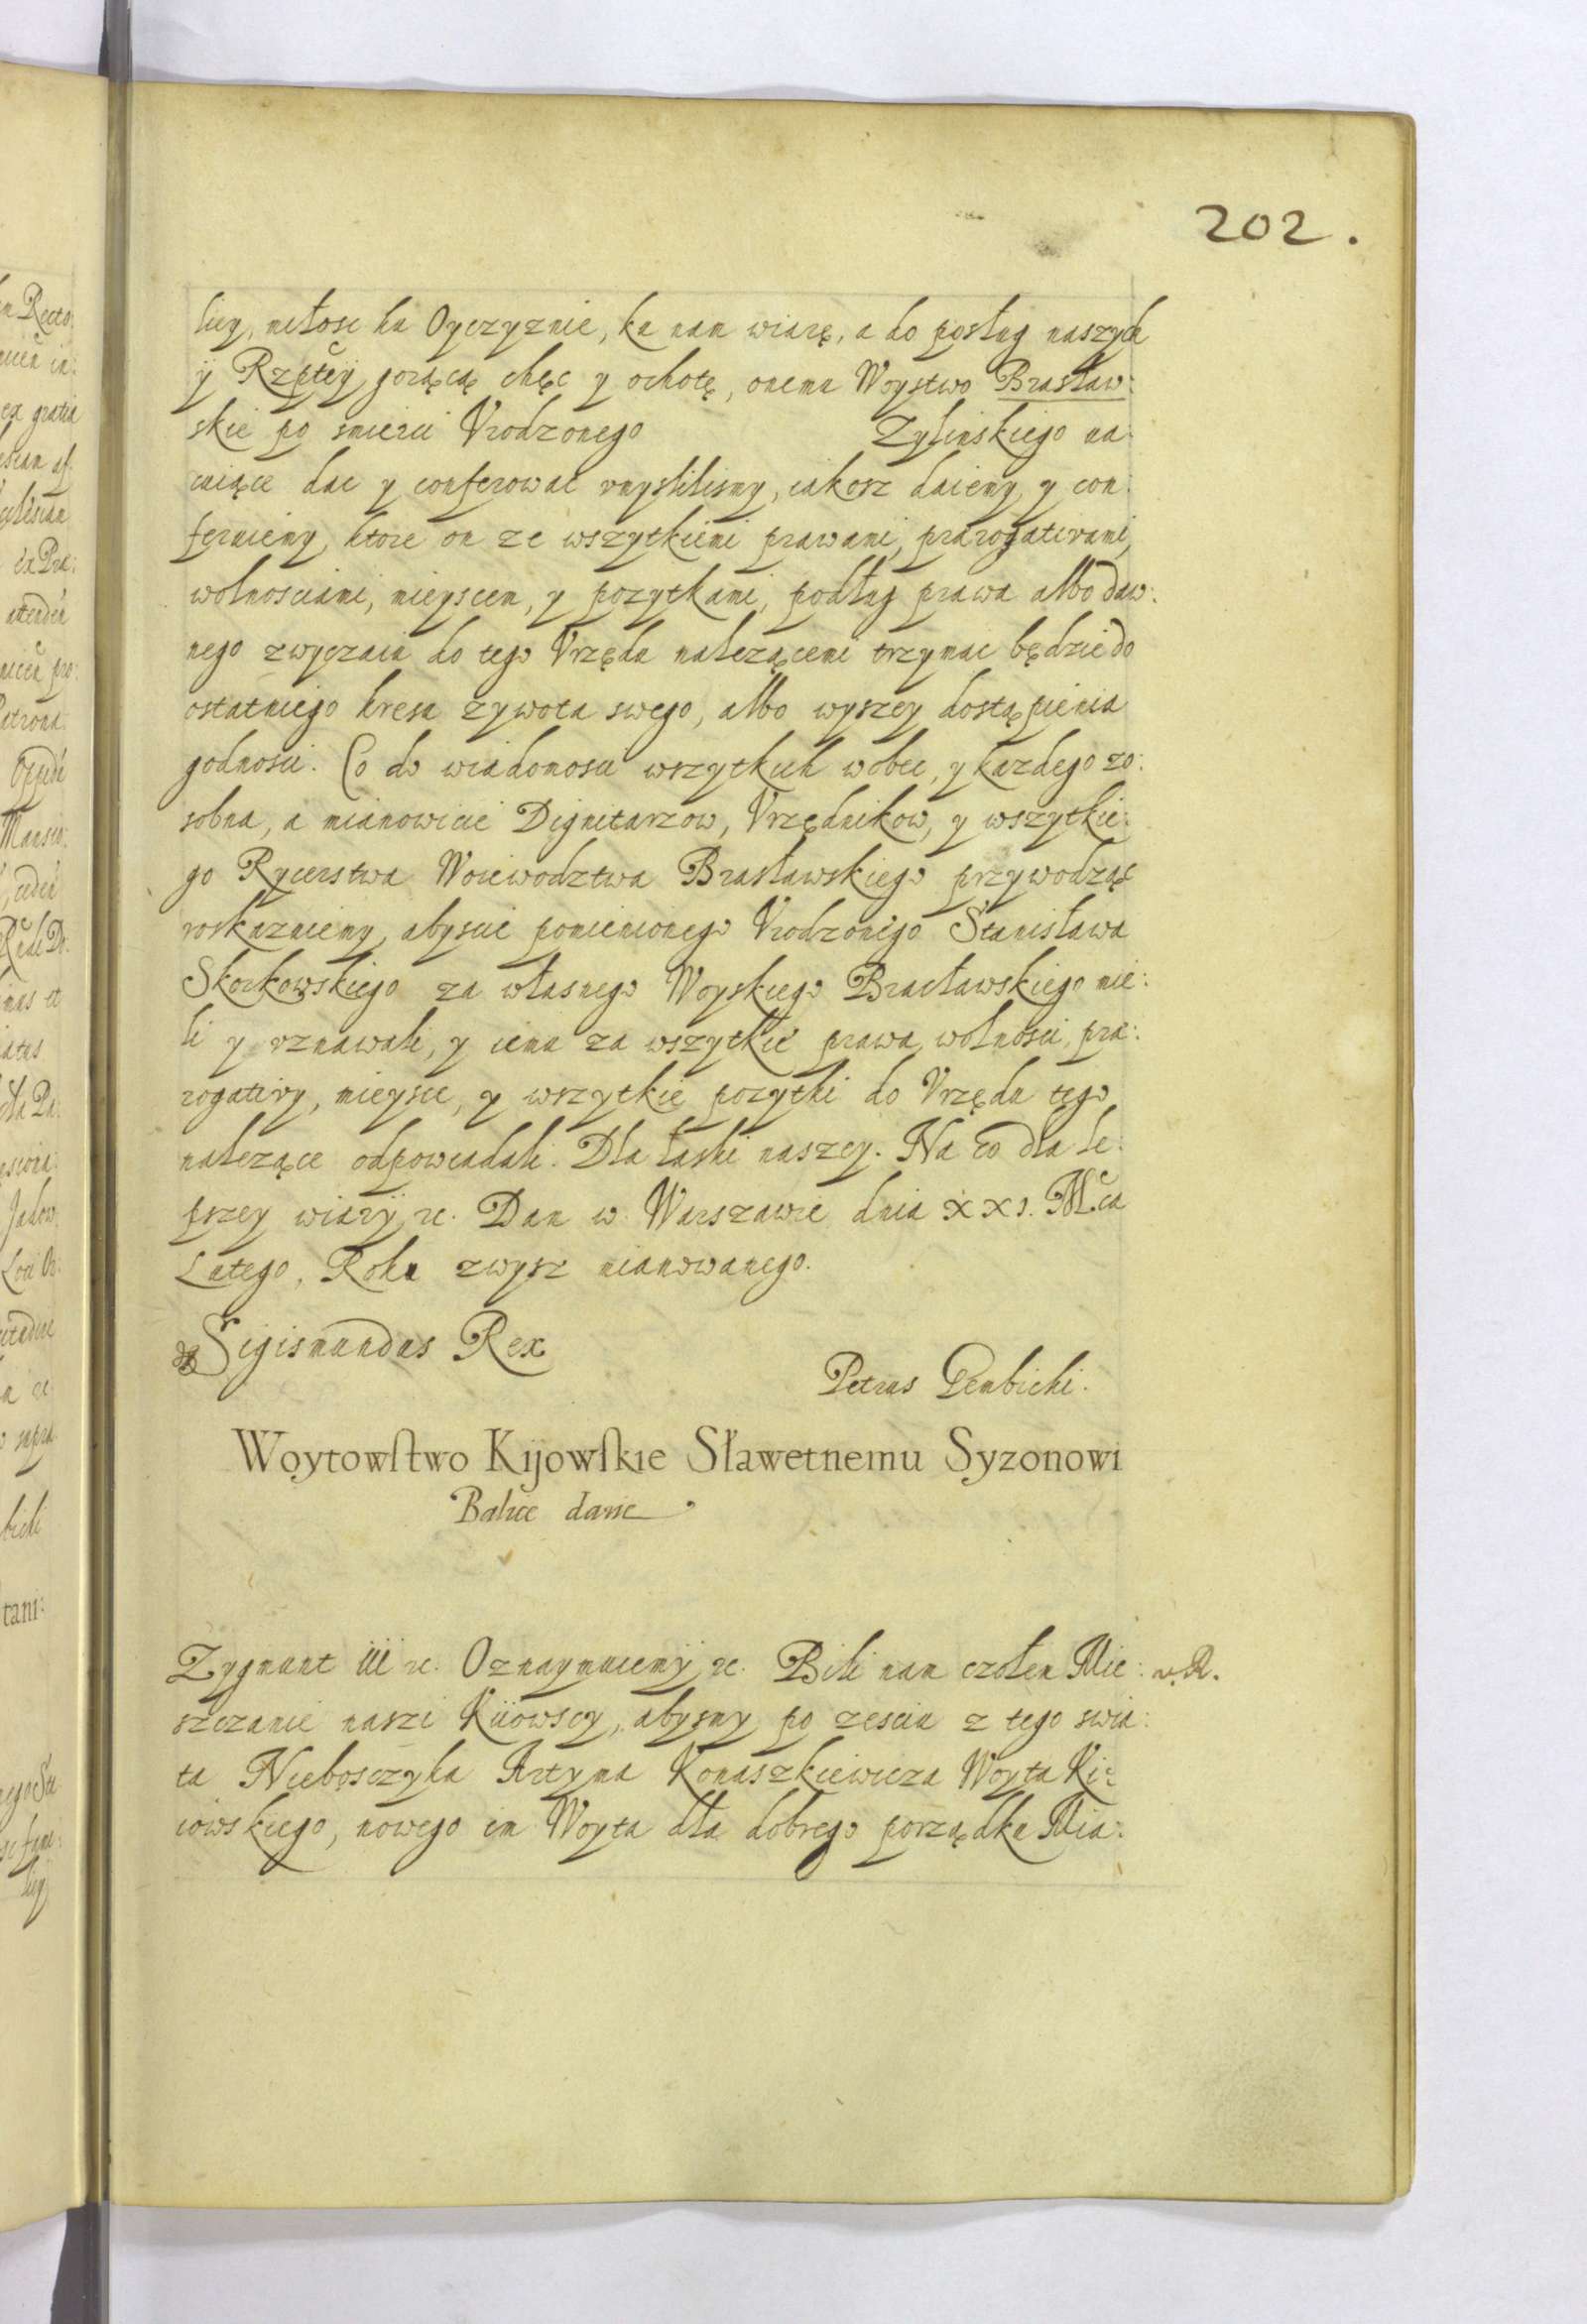 202.
licy, miłosc ku Oyczyznie, ku nam wiarę, a do posług naszych
ÿ Rzptey gorącą chęc y ochotę, onemu Woystwo Brasław:
skie po smierci Vrodzonego Zylinskiego wa:
cuiące dac y conferowac vmyslilismy, iakosz daiemy y con:
feruiemy, ktore on ze wszytkiemi prawami, prærogatiwami,
wolnosciami, mieyscem, y pozytkami, podług prawa albo daw:
nego zwyczaiu do tego Vrzędu nalezącemi trzymac będzie do
ostatniego kresu zywota swego, albo wyszey dostąpienia
godnosci. Co do wiadomosci wszytkich wobec, y kazdego zo:
sobna, a mianowicie Dignitarzow, Vrzędnikow, y wszytkie:
go Rycerstwa Woiewodztwa Brasławskiego przywodząc
roskazuiemy, abyscie pomienionego Vrodzonego Stanisława
Skorkowskiego za własnego Woyskiego Bracławskiego mie:
li y vznawali, y iemu za wszytkie prawa, wolnosci, præ:
rogatiwy, mieysce, y wszytkie pozytki do Vrzędu tego
nalezące odpowiadali. Dla łaski naszey. Na co dla le:
pszey wiary, rc. Dan w Warszawie dnia XXI. Mca
Lutego, Roku zwysz mianowanego.
Sigismundus Rex
Petrus Gembicki.
Woytowstwo Kijowskie Sławetnemu Syzonowi
Balice danie
Zygmunt III rc. Oznaymuiemÿ rc. Bili nam czołem Mie: v. R.
szczanie naszi Kiiowscy, abysmy po zesciu z tego swia:
ta Niebosczyka Artyma Konaszkiewicza Woyta Ki:
iowskiego, nowego im Woyta dla dobrego porządku Mia: